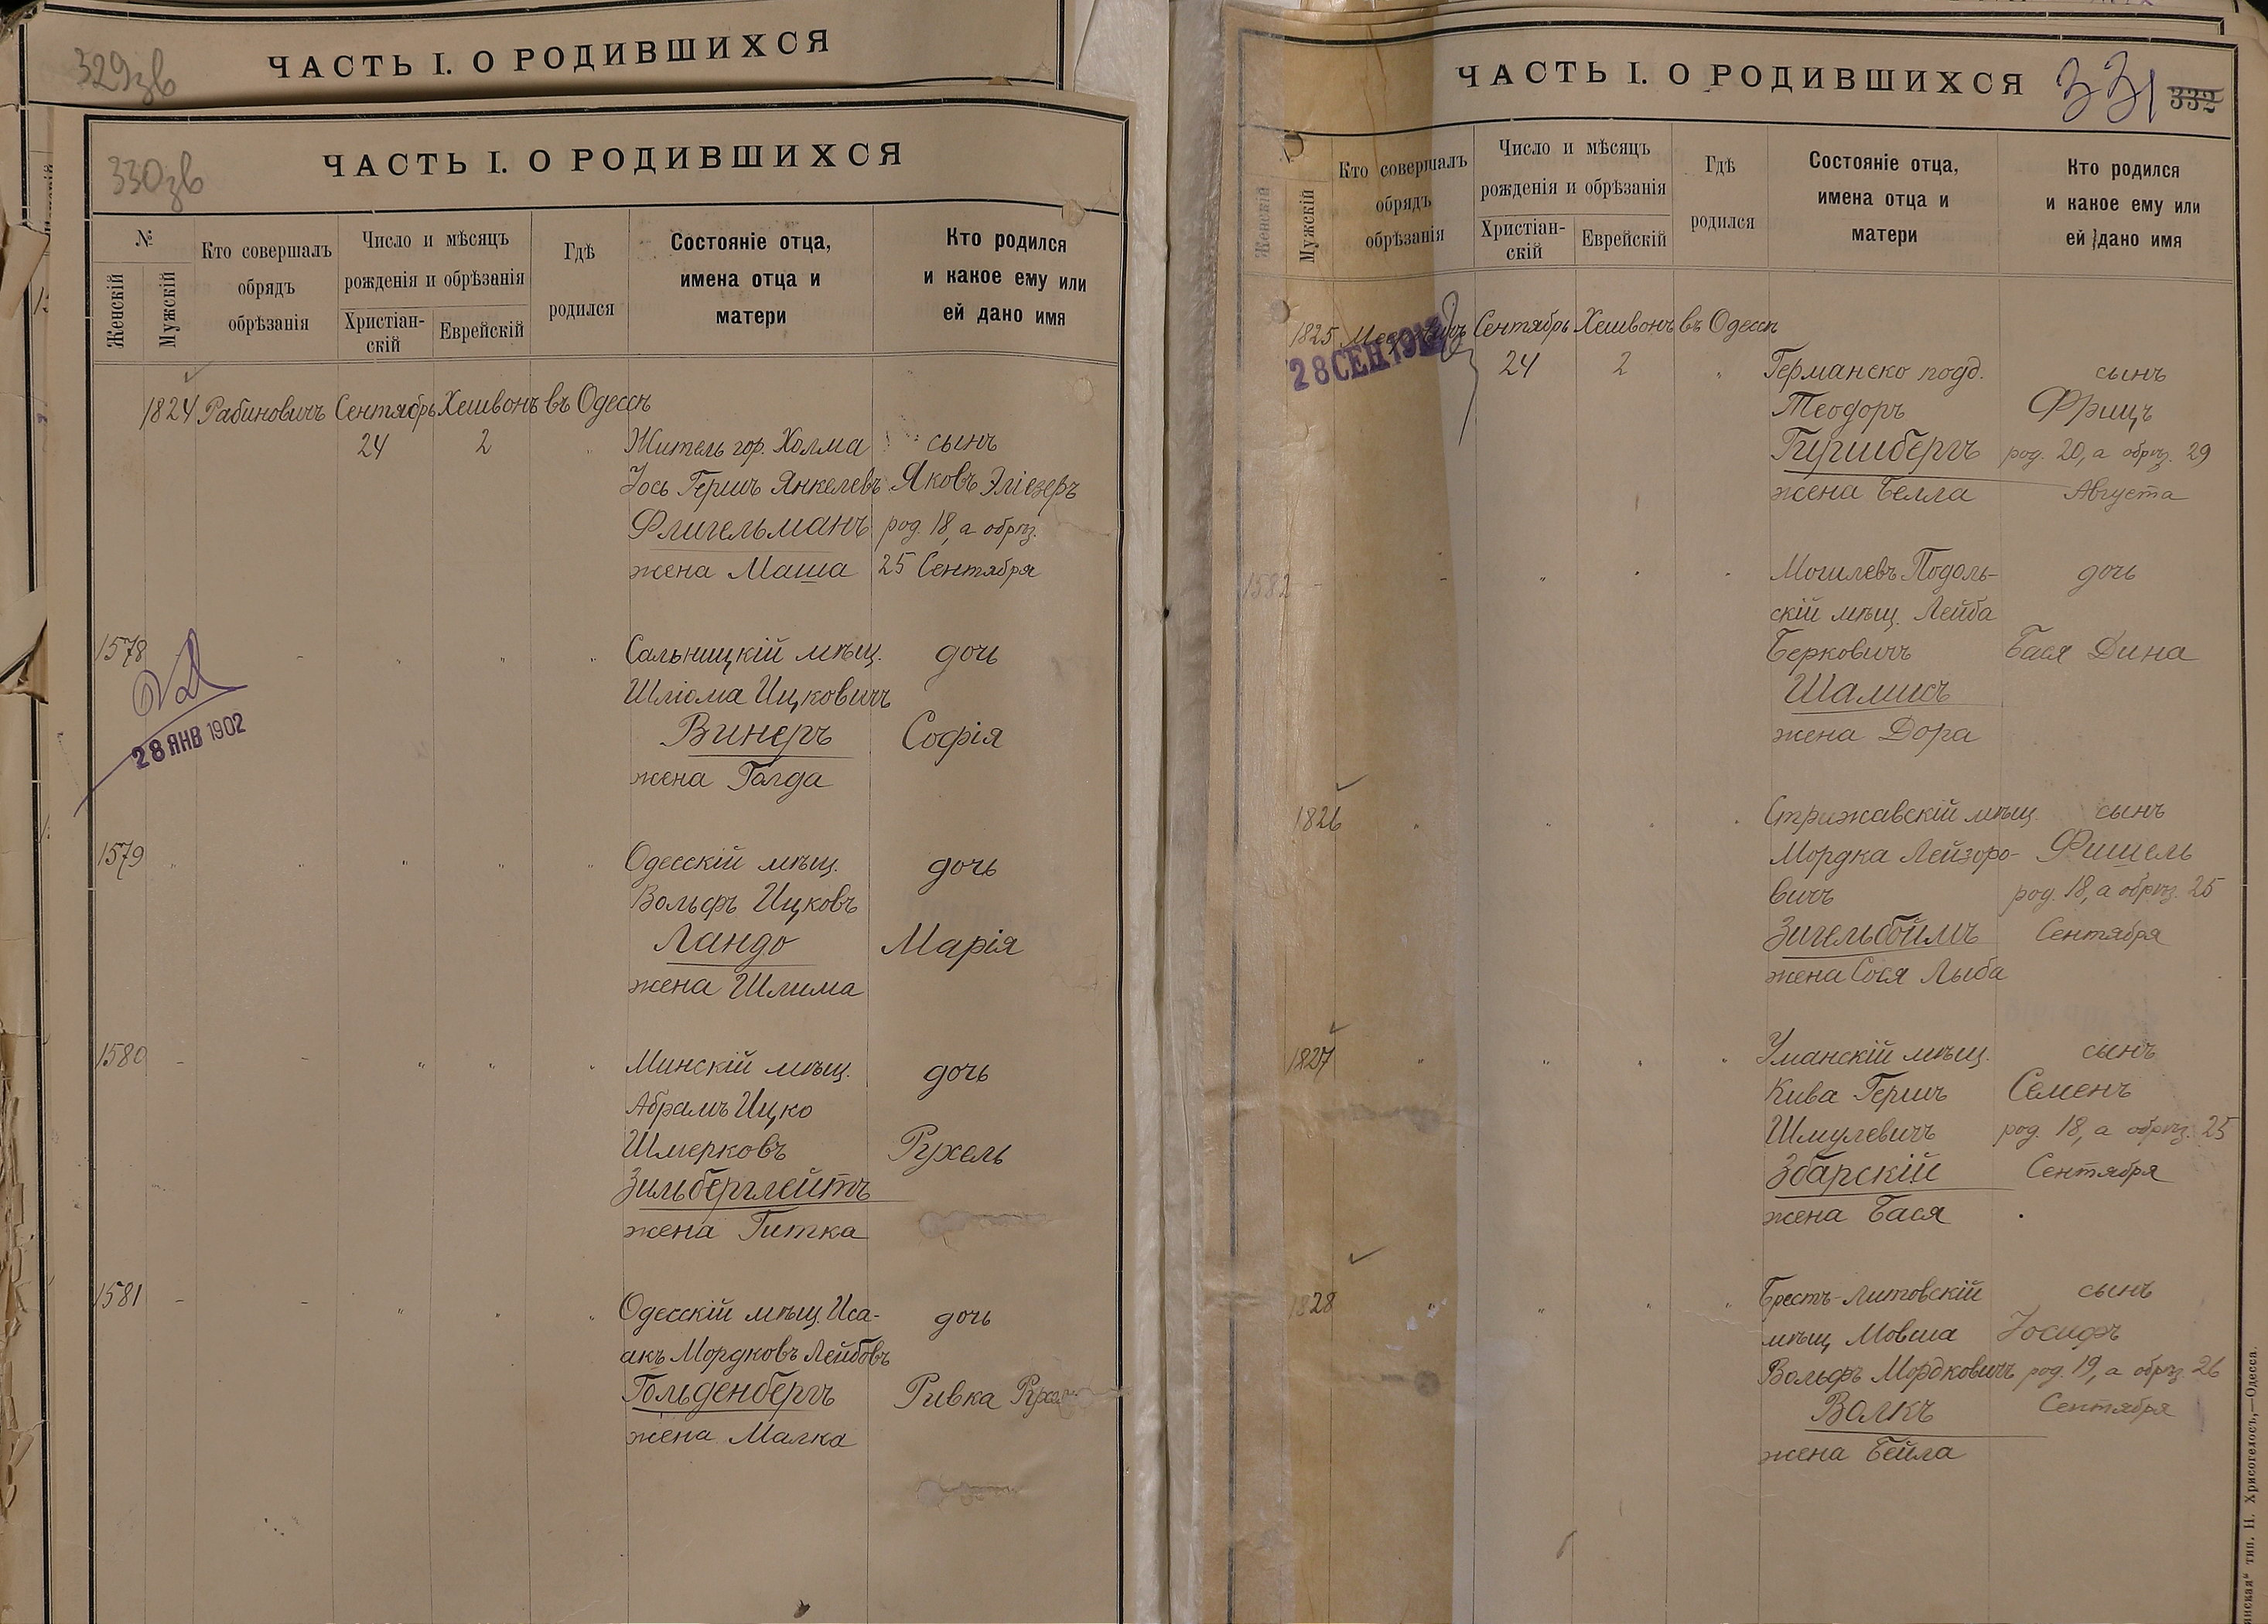 329зв
ЧАСТЬ I. О РОДИВШИХСЯ
330зв
ЧАСТЬ I. О РОДИВШИХСЯ
№
Женскій
Мужскій
Кто совершалъ
обрядъ
обрѣзанія
Число и мѣсяцъ
рожденія и обрѣзанія
Христіан-
скій
Еврейскій
Гдѣ
родился
Состояніе отца,
имена отца и
матери
Кто родился
и какое ему или
ей дано имя
1824 Рабиновичъ Сентябрь Хешвонъ въ Одессѣ
24 2 " Житель гор. Холма сынъ
Іось Гершъ Янкелевъ Яковъ Эліезеръ
Флигельманъ род. 18, а обрѣз.
жена Маша 25 Сентября
1578 - " " " Сальницкій мѣщ. дочь
Шліома Ицковичъ
Винеръ Софія
жена Голда
28 ЯНВ 1902
1579 " " " " " Одесскій мѣщ. дочь
Вольфъ Ицковъ
Ландо Марія
жена Шлима
1580 - - " " " Минскій мѣщ. дочь
Абрамъ Ицко
Шмерковъ Рухель
Зильберглейтъ
жена Гитка
1581 - - " " " Одесскій мѣщ. Иса- дочь
акъ Мордковъ Лейбовъ
Гольденбергъ Ривка
жена Малка
ЧАСТЬ I. О РОДИВШИХСЯ
331 332
Женскій
Мужскій
Кто совершалъ
обрядъ
обрѣзанія
Число и мѣсяцъ
рожденія и обрѣзанія
Христіан-
скій
Еврейскій
Гдѣ
родился
Состояніе отца,
имена отца и
матери
Кто родился
и какое ему или
ей дано имя
1825 Сентябрь Хешвонъ въ Одессѣ
28 СЕН
24 2 " Германско подд. сынъ
Теодоръ Фрицъ
Гиршбергъ род. 20, а обрѣз. 29
жена Белла Августа
1582 - - " " " Могилевъ Подоль- дочь
скій мѣщ. Лейба
Берковичъ Бася Дина
Шалисъ
жена Дора
1826 " " " " Стрижавскій мѣщ. сынъ
Мордка Лейзоро- Фишель
вичъ род. 18, а обрѣз. 25
Зигельбоймъ Сентября
жена Сося Лыба
1827 " " " " Уманскій мѣщ. сынъ
Кива Гершъ Семенъ
Шмулевичъ род. 18, а обрѣз. 25
Збарскій Сентября
жена Бася
1828 " " " " Брестъ-Литовскій сынъ
мѣщ. Мовша Іосифъ
Вольфъ Мордковичъ род. 19, а обрѣз. 26
Волкъ Сентября
жена Бейла
тип. Н. Хрисогелосъ,—Одесса.